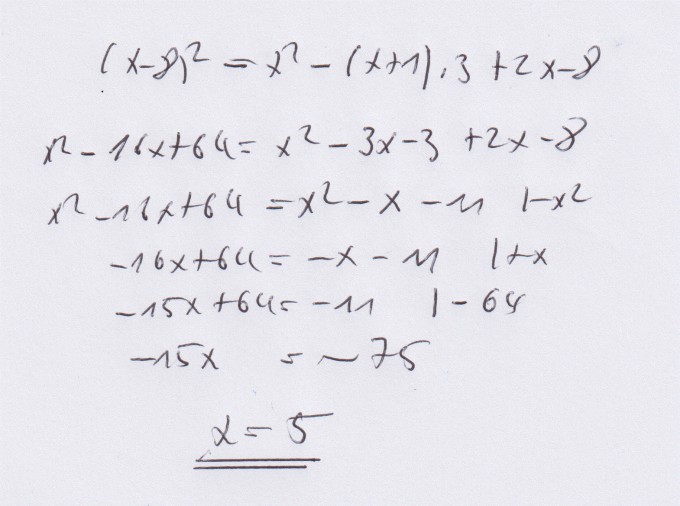 (x-8)² = x² - (x+1).3 +2x-8
x² - 16x+64 = x² - 3x-3 +2x-8
x² -16x+64 = x² - x - 11 |-x²
-16x+64 = -x - 11 |+x
-15x+64 = -11 |- 64
-15x = -75
x = 5